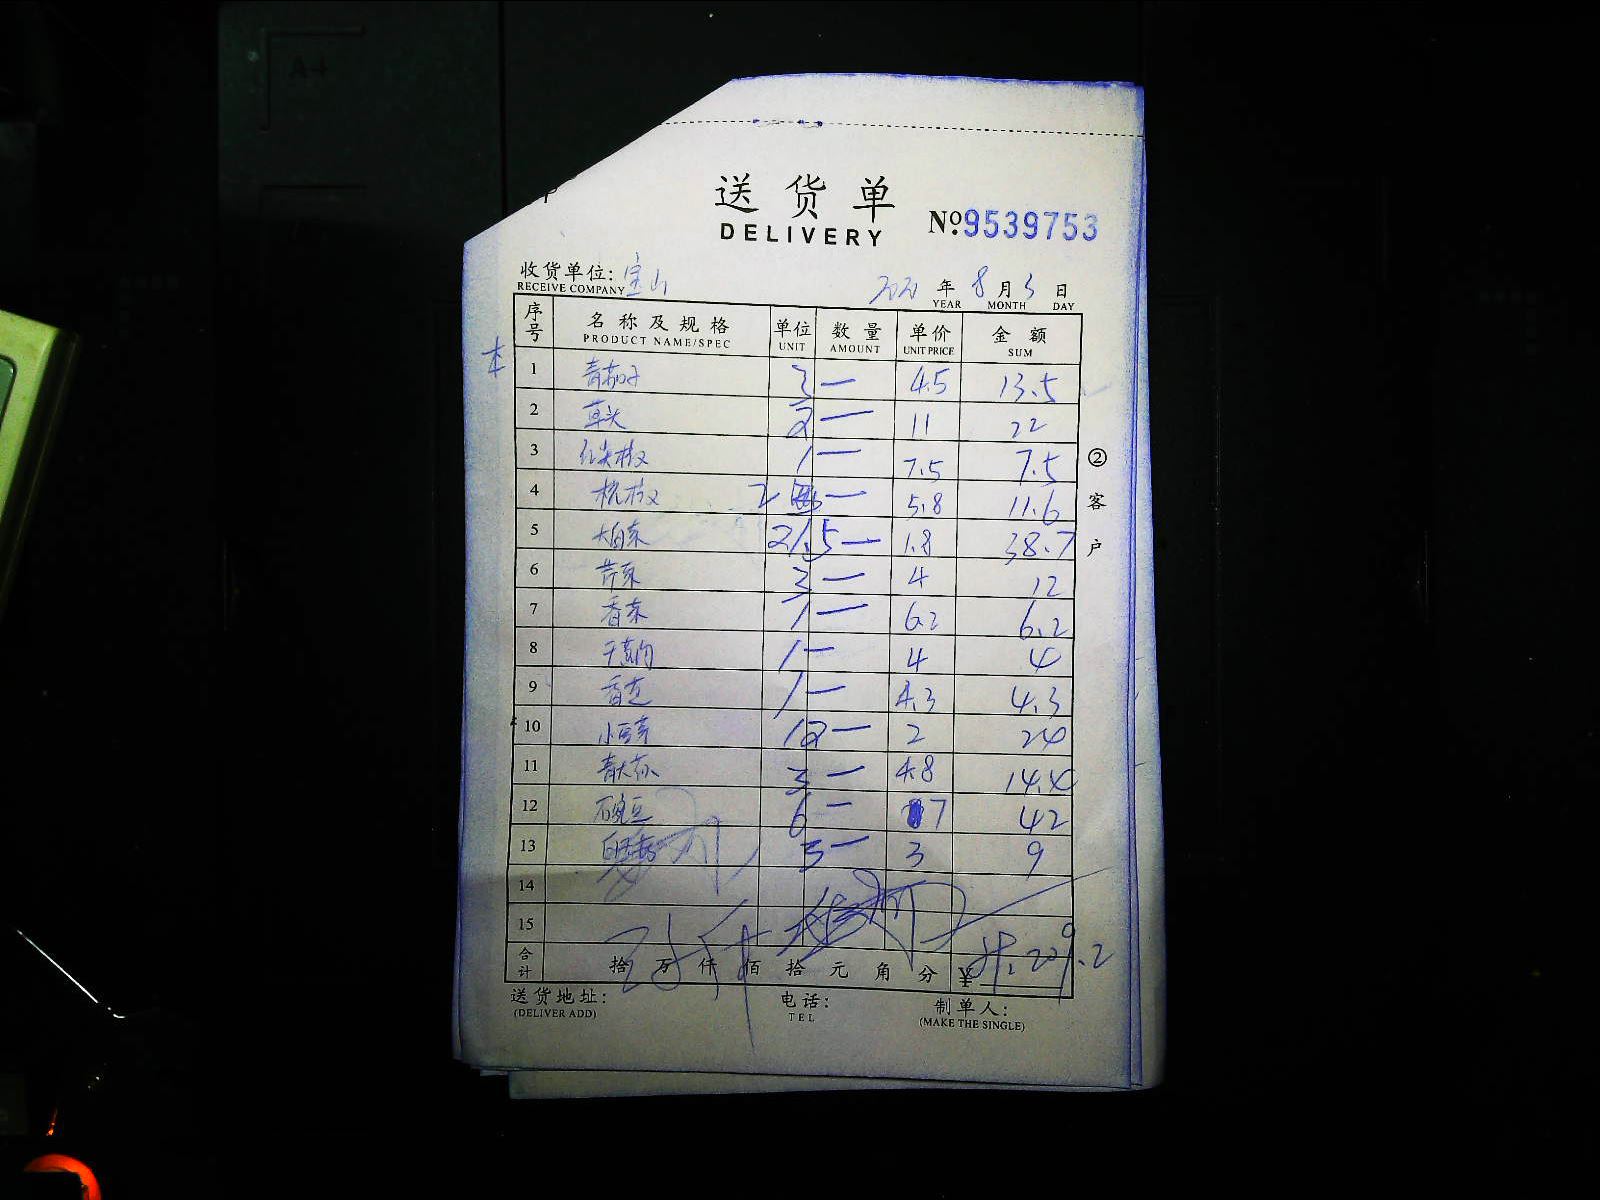 A4
送货单
DELIVERY
№ 9539753
收货单位: 宝山
RECEIVE COMPANY
2020 年 8 月 3 日
YEAR MONTH DAY
序号 名称及规格 单位 数量 单价 金额
PRODUCT NAME/SPEC UNIT AMOUNT UNIT PRICE SUM
1 青茄子 3 — 4.5 13.5
2 草头 2 — 11 22
3 红尖椒 1 — 7.5 7.5
4 杭椒 2 — 5.8 11.6
5 大白菜 21.5 — 1.8 38.7
6 芹菜 3 — 4 12
7 香菜 1 — 6.2 6.2
8 1 — 4 4
9 1 — 4.3 4.3
10 12 — 2 24
11 3 — 4.8 14.4
12 6 — 7 42
13 3 — 3 9
14
15
合计 拾 万 仟 佰 拾 元 角 分 ¥ 209.2
②客户
送货地址:
(DELIVER ADD)
电话:
TEL
制单人:
(MAKE THE SINGLE)